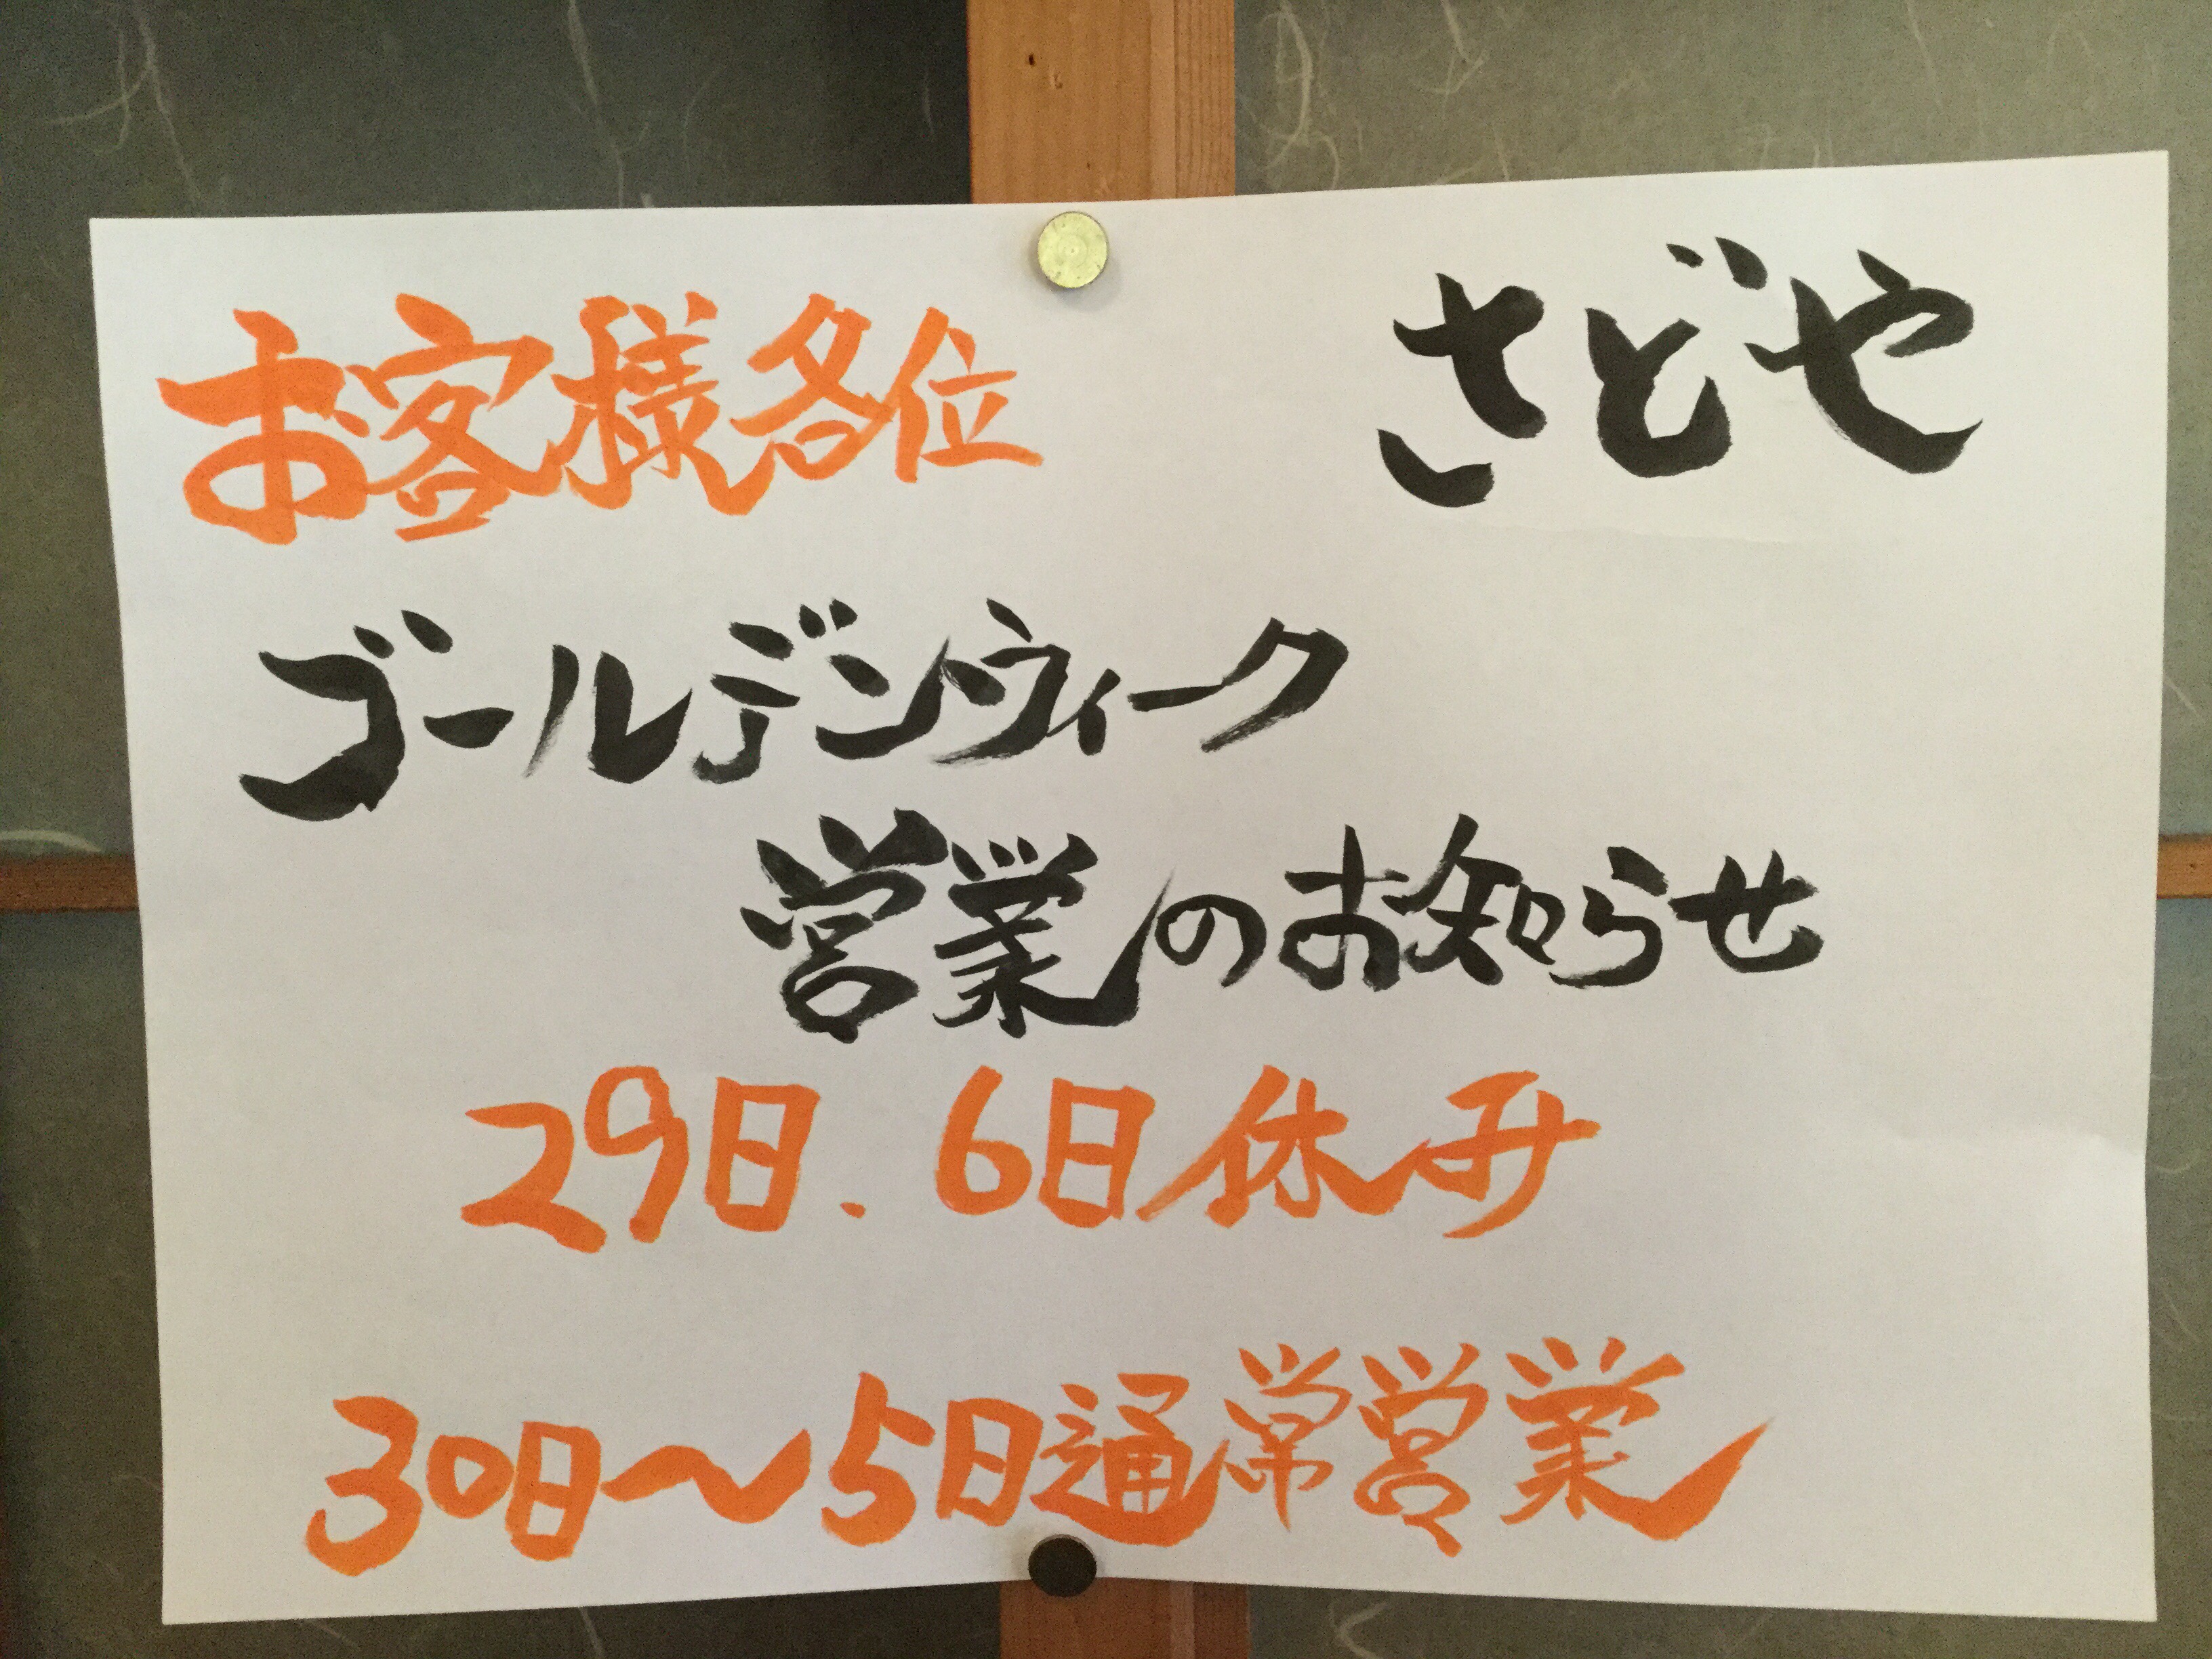 お客様各位 さどや
ゴールデンウィーク
営業のお知らせ
29日.6日休み
30日〜5日通常営業